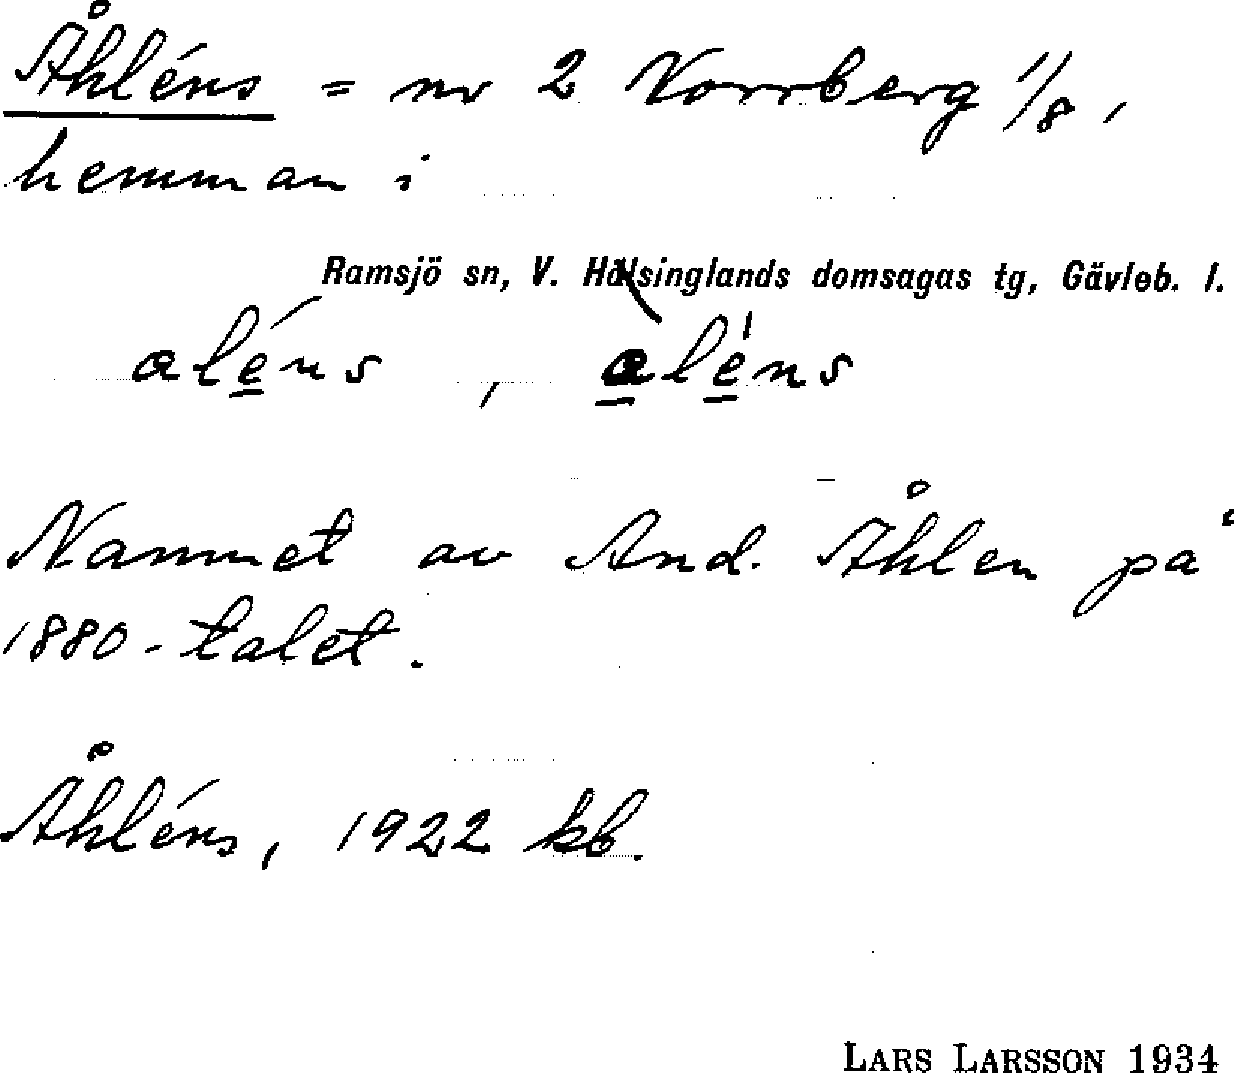 Åhléns = nr 2 Norrberg 1/8,
hemman i
Ramsjö sn, V. Hälsinglands domsagas tg, Gävleb. l.
aléns , aléns
Namnet av And. Åhlen på
1880-talet.
Åhléns, 1922 kb.
LARS LARSSON 1934